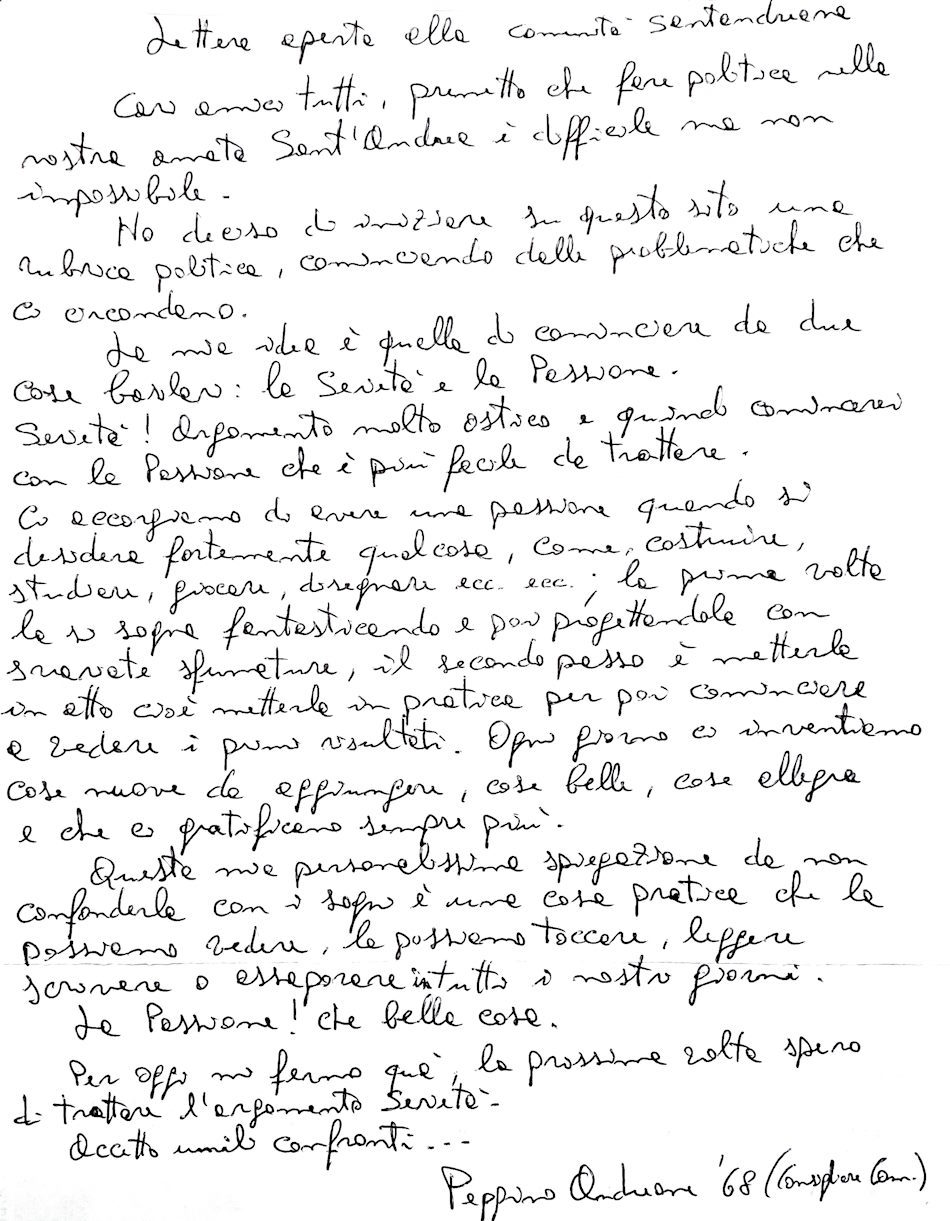 Lettera aperta alla comunità santandreana
Cari amici tutti, premetto che fare politica nella
nostra amata Sant'Andrea è difficile ma non
impossibile -
Ho deciso di iniziare su questo sito una
rubrica politica, cominciando dalle problematiche che
ci circondano.
La mia idea è quella di cominciare da due
cose basilari: la Serietà e la Passione.
Serietà! Argomento molto ostico e quindi comincerei
con la Passione che è più facile da trattare.
Ci accorgiamo di avere una passione quando si
desidera fortemente qualcosa, come, costruire,
studiare, giocare, disegnare ecc. ecc.; la prima volta
la si sogna fantasticando e poi progettandola con
svariate sfumature, il secondo passo è metterla
in atto cioè metterla in pratica per poi cominciare
a vedere i primi risultati. Ogni giorno ci inventiamo
cose nuove da aggiungere, cose belle, cose allegre
e che ci gratificano sempre più.
Questa mia personalissima spiegazione da non
confonderla con i sogni è una cosa pratica che la
possiamo vedere, la possiamo toccare, leggere
scrivere o assaporare in tutti i nostri giorni.
La Passione! che bella cosa.
Per oggi mi fermo quà, la prossima volta spero
di trattare l'argomento Serietà -
Accetto umili confronti ---
Peppino Andreani '68 (Consigliere Com.)